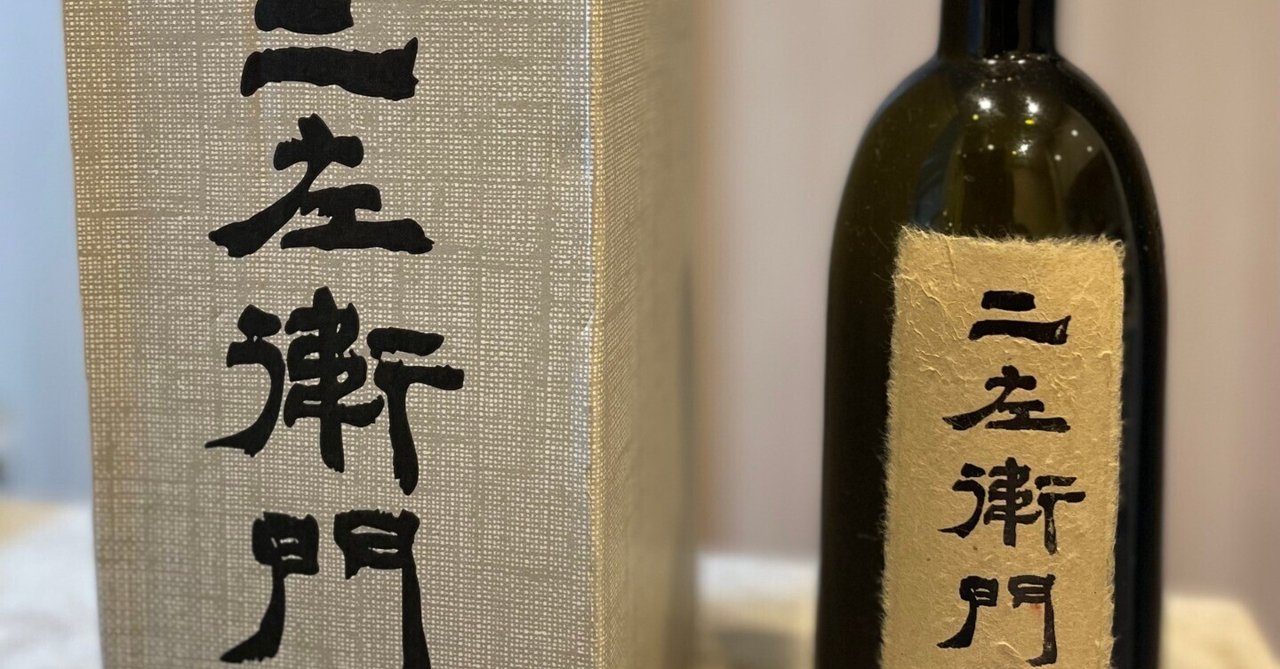 二左衛門
二左衛門